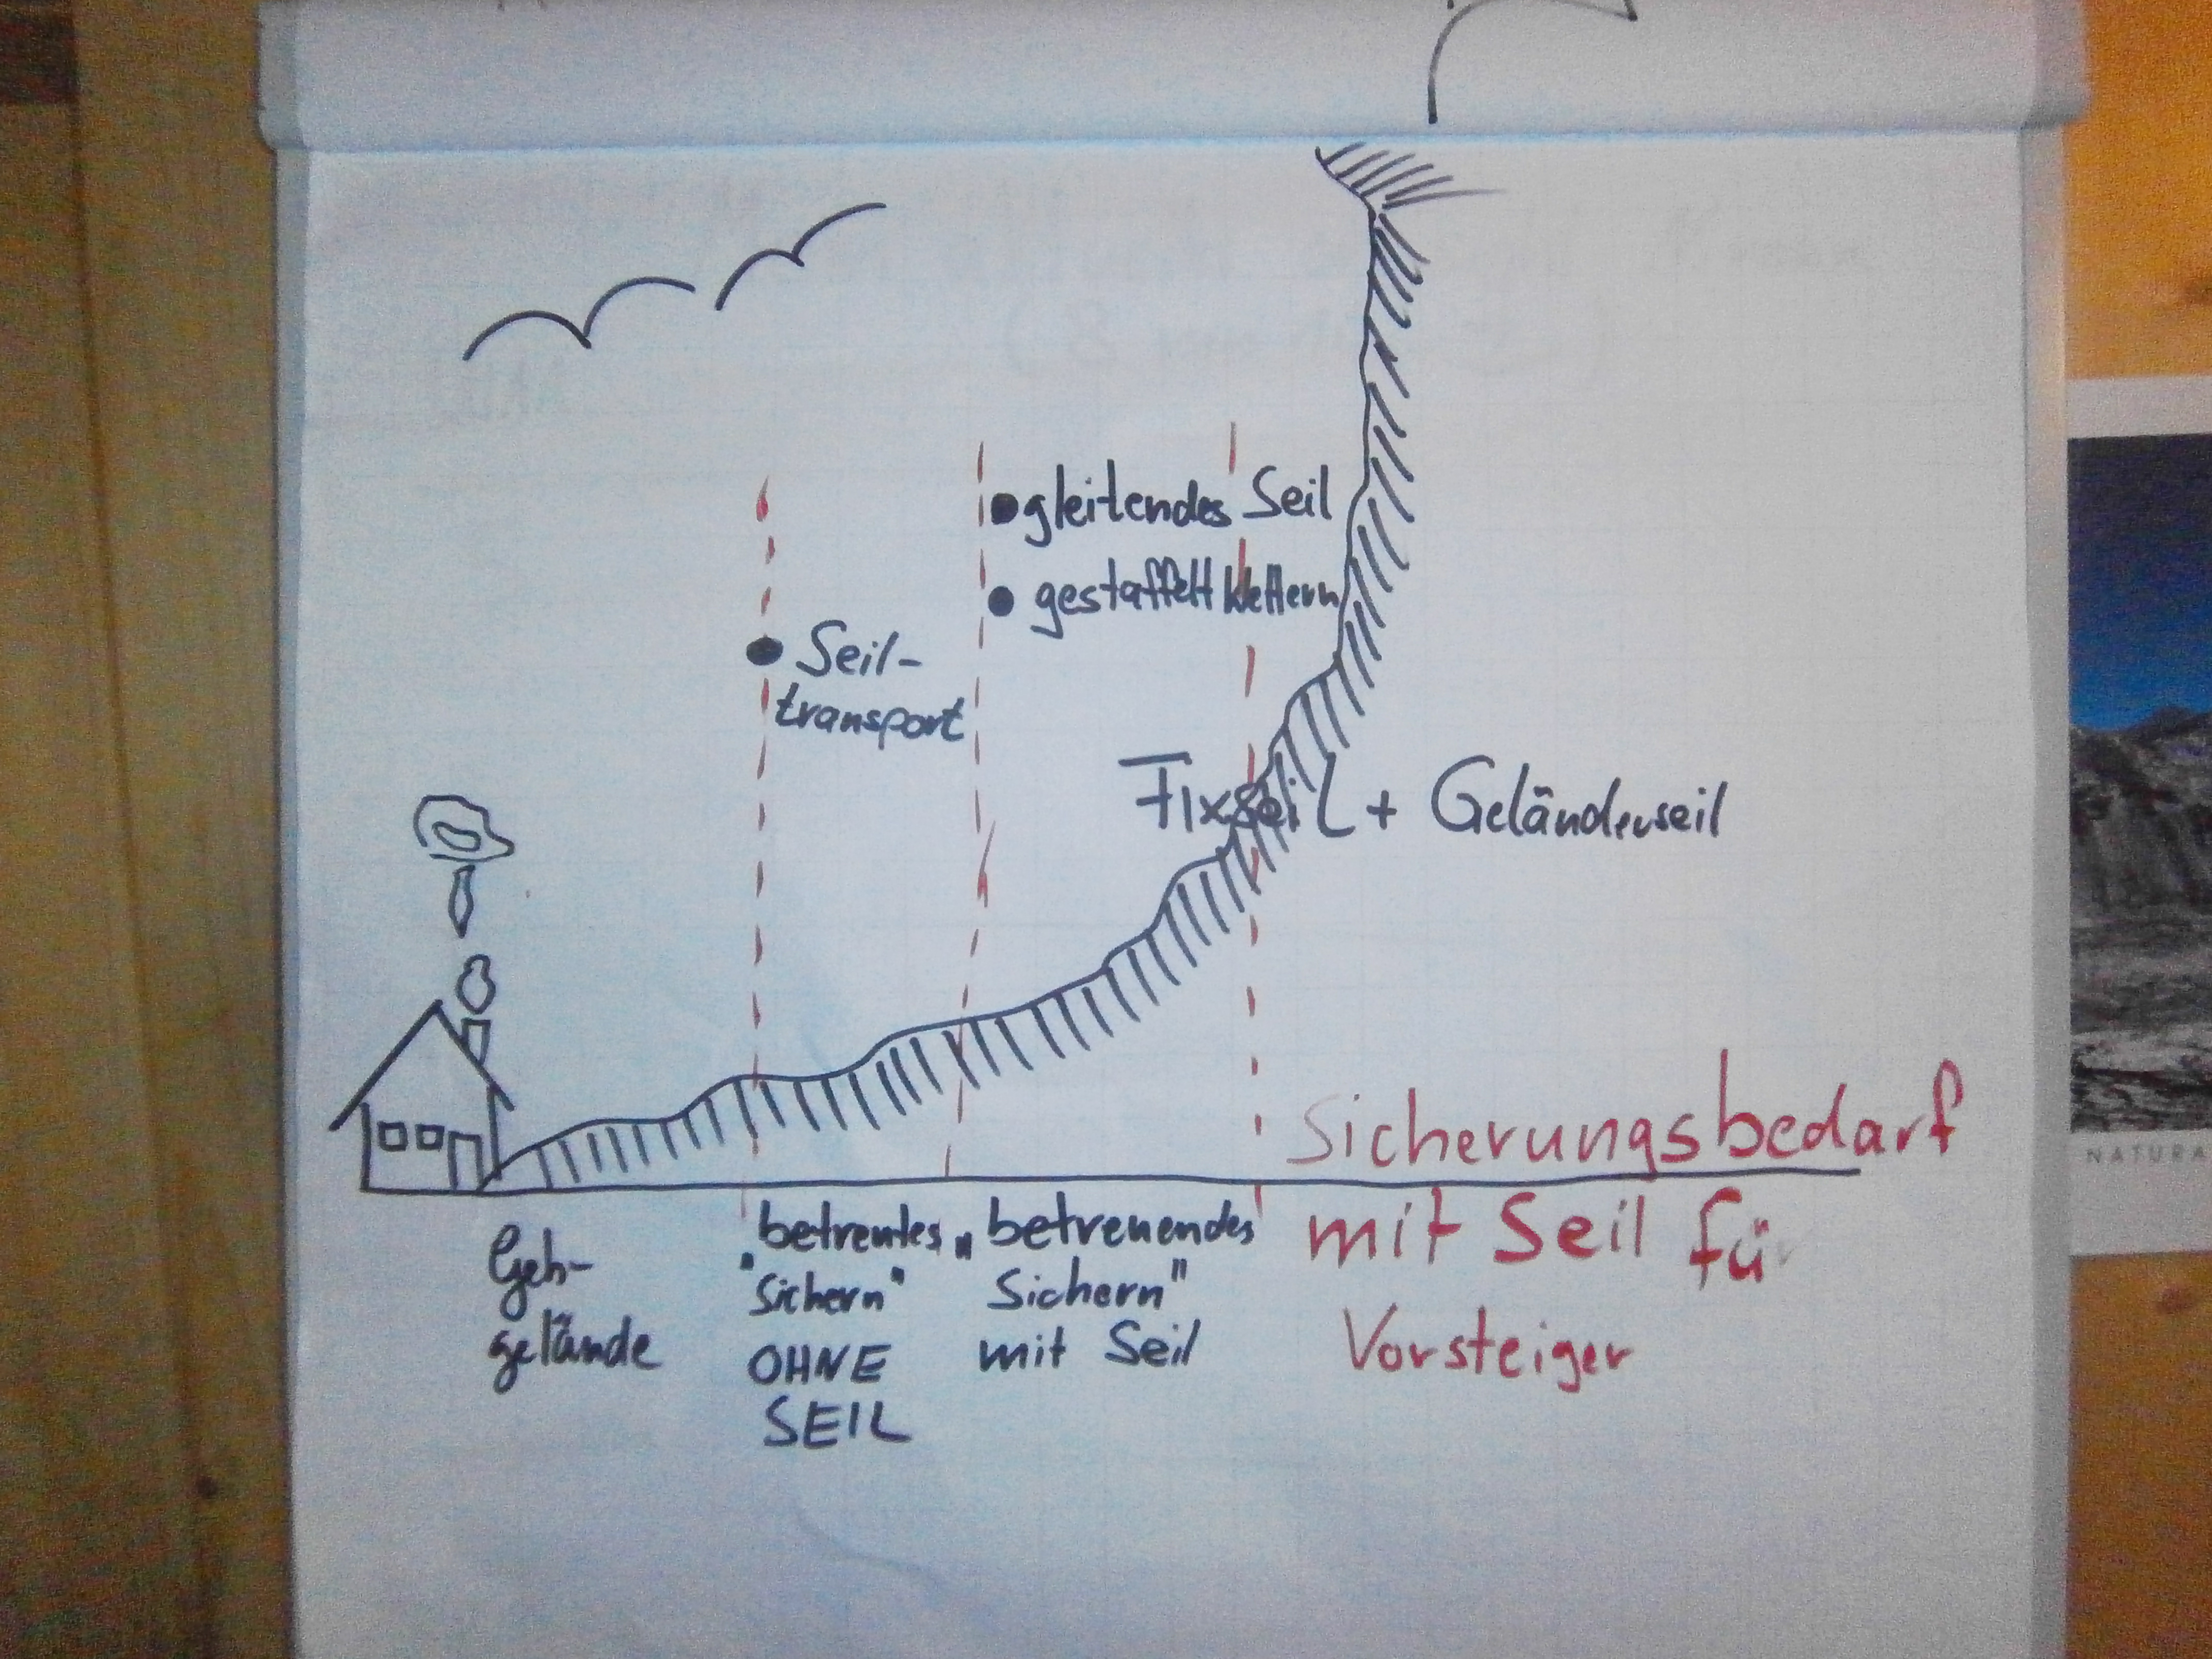 • gleitendes Seil
• gestaffelt klettern
• Seil-
transport
Fixseil + Geländerseil
Sicherungsbedarf
mit Seil für
Vorsteiger
Geh-
gelände
betreutes
"Sichern"
OHNE
SEIL
"betreuendes
Sichern"
mit Seil
NATURA